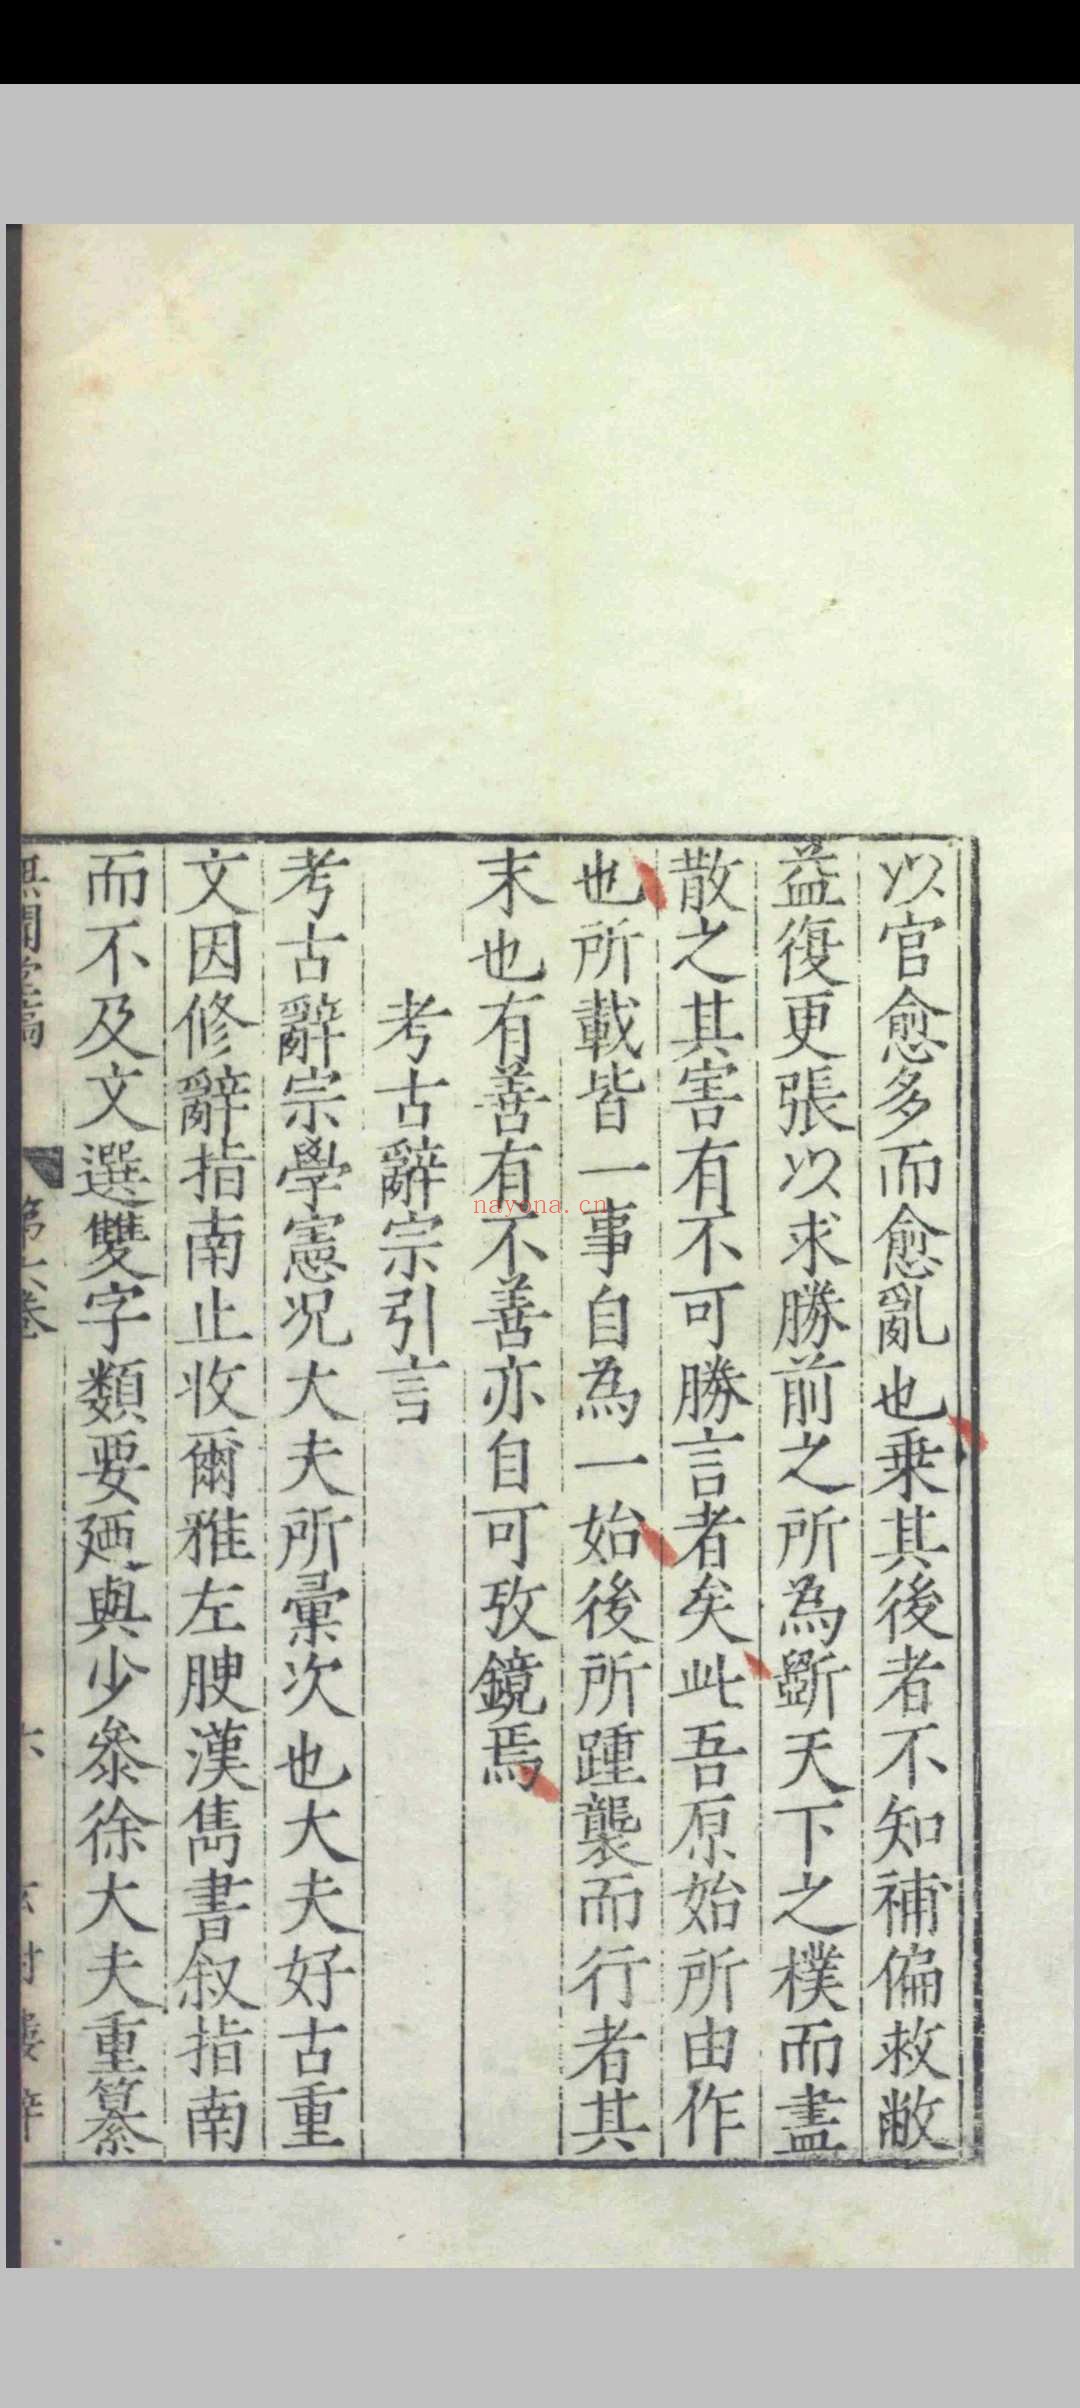 以官愈多而愈亂也乗其後者不知補偏救敝
益復更張以求勝前之所為斵天下之樸而盡
散之其害有不可勝言者矣此吾原始所由作
也所載皆一事自為一始後所踵襲而行者其
末也有善有不善亦自可攷鏡焉
考古辭宗引言
考古辭宗學憲况大夫所彙次也大夫好古重
文因修辭指南止收爾雅左腴漢雋書叙指南
而不及文選雙字類要廼與少叅徐大夫重纂
第六卷
六
nayona.cn